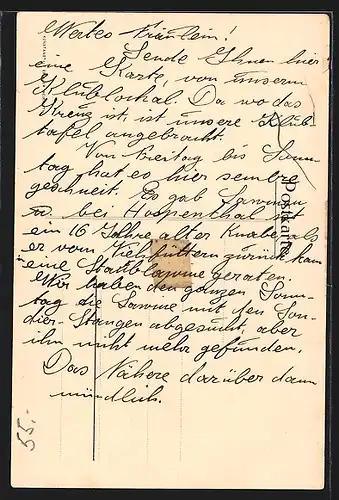 Wertes Fräulein!
Sende Ihnen hier
eine Karte, von unserm
Klublockal. Da wo das
Kreuz ist, ist unsere Klub-
tafel angebracht.
Von Freitag bis Sonn-
tag hat es hier
geschneit. Es gab Lawinen
u. bei Hospenthal ist
ein 16 Jahre alter Knabe, als
er vom Viehfüttern zurück kam
in eine Staublawine geraten.
Wir haben den ganzen Sonn-
tag die Lawine mit den Son-
dier-Stangen abgesucht, aber
ihn nicht mehr gefunden.
Das Nähere darüber dann
mündlich.
Postkarte
55.-